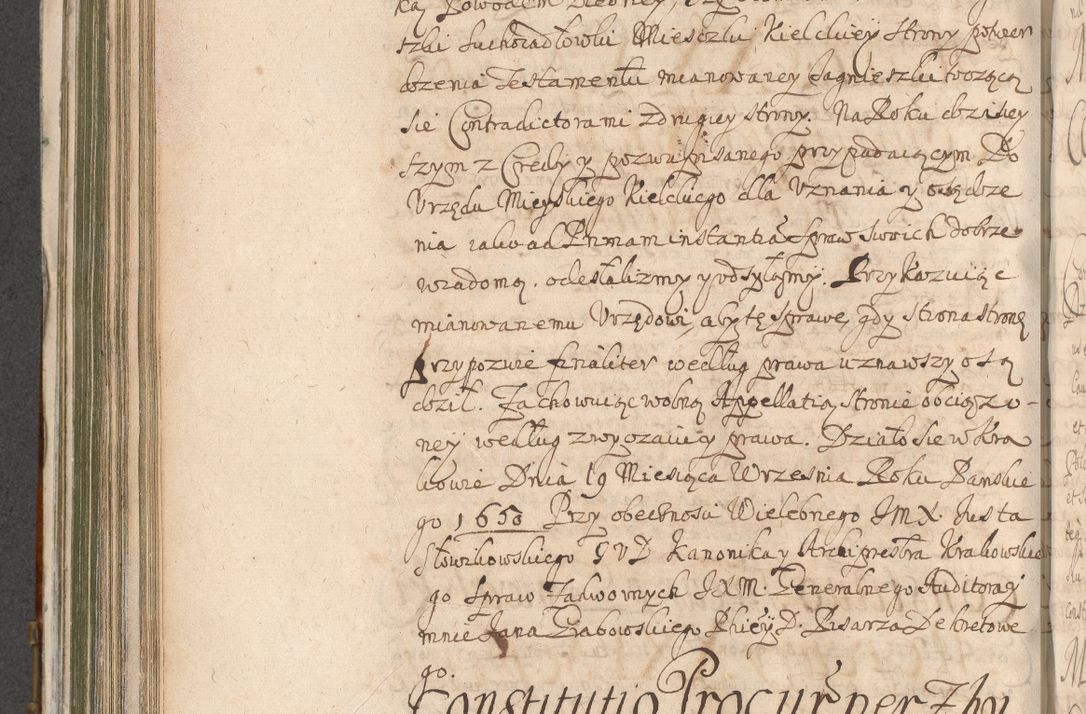 szki Suchoradlowski Miesczki Kielckiey strony potwer
dzenia Testamentu mianowaney Jagnieszki tocząceÿ
się Contradictorami z drugiey strony. Na Roku dzisiey
szym z Credy y pozwu pisanego przypadaiącym Do
Vrzędu Mieyskiego Kielckiego dla Vznania y osądze
nia iako ad Primam instantią Spraw swoich dobrze
wiadomą. odesłalizmy y odsyłamy. Przykazuiąc
mianowanemu Vrzędowi, aby tę sprawę, gdy strona stronę
przypozwie finaliter według prawa uznawszy osą
dził. Zachowuiąc wolną Appellatią Stronie obciązo-
ney według zwyczaiu y prawa. Działo się w Kra
kowie Dnia 19 Miesiąca Wrzesnia Roku Panskie
go 1650 Przy obecnosci Wielebnego JMX. Justa
Słowikowskiego JVD Kanonika y Archipresbra Krakowskie
go Spraw Zadwornych JXM. Generalnego Auditora y
mnie Jana Grabowskiego Phiey D. Pisarza Dekretowe
go.
Constitutio Procuris per